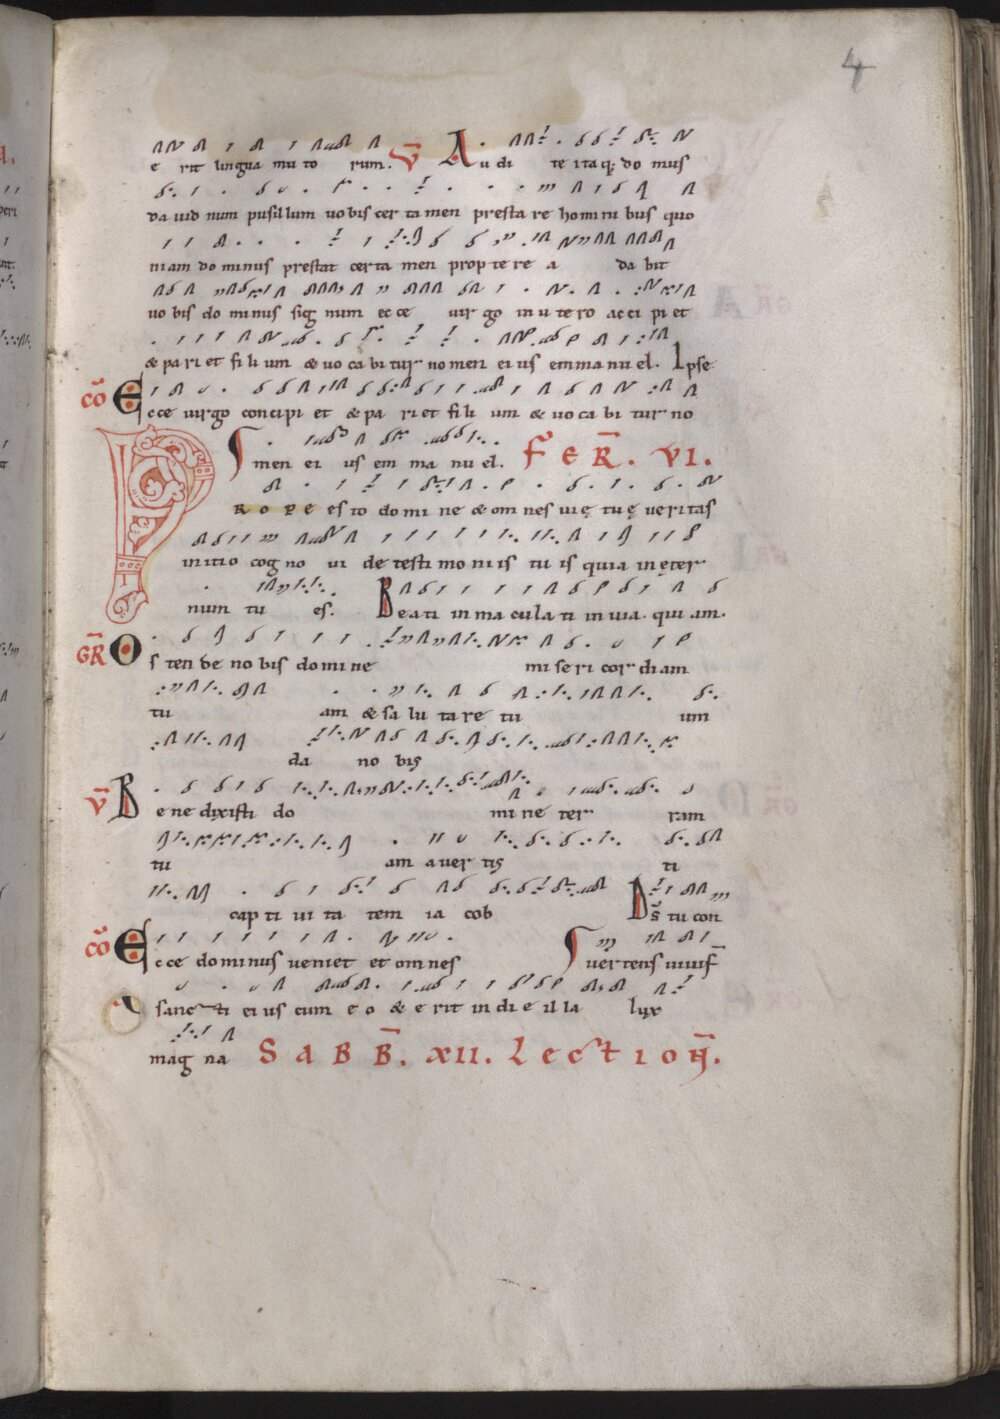 4
e rit lingua mu to rum. V̄ Au di te itaq; do mus
da uid num pusillum uobis cer ta men presta re homini bus quo
niam do minus prestat certa men prop te re a da bit
uo bis do minus sig num ec ce uir go in u te ro acci pi et
& pa ri et fi li um & uo ca bi tur no men ei us emmanu el. Ipse
CŌ Ecce uirgo concipi et & pa ri et fi li um & uo ca bi tur no
men ei us em ma nu el. FER̄. VI.
PROPE es to do mi ne & om nes uię tuę ueritas
initio cog no ui de testi mo niis tu is quia in ęter
num tu es. Beati inma cula ti in uia. qui am.
GR̄ Os ten de no bis do mi ne mi se ri cor di am
tu am & sa lu ta re tu um
da no bis
V̄ Be ne dixisti do mi ne ter ram
tu am auer tis ti
cap ti ui ta tem ia cob D̄s tu con
CŌ Ecce do minus ueniet et om nes uertens uiuif̄
sanc ti ei us cum e o & e rit in di e il la lux
mag na SABB̄. XII. Lectioū.